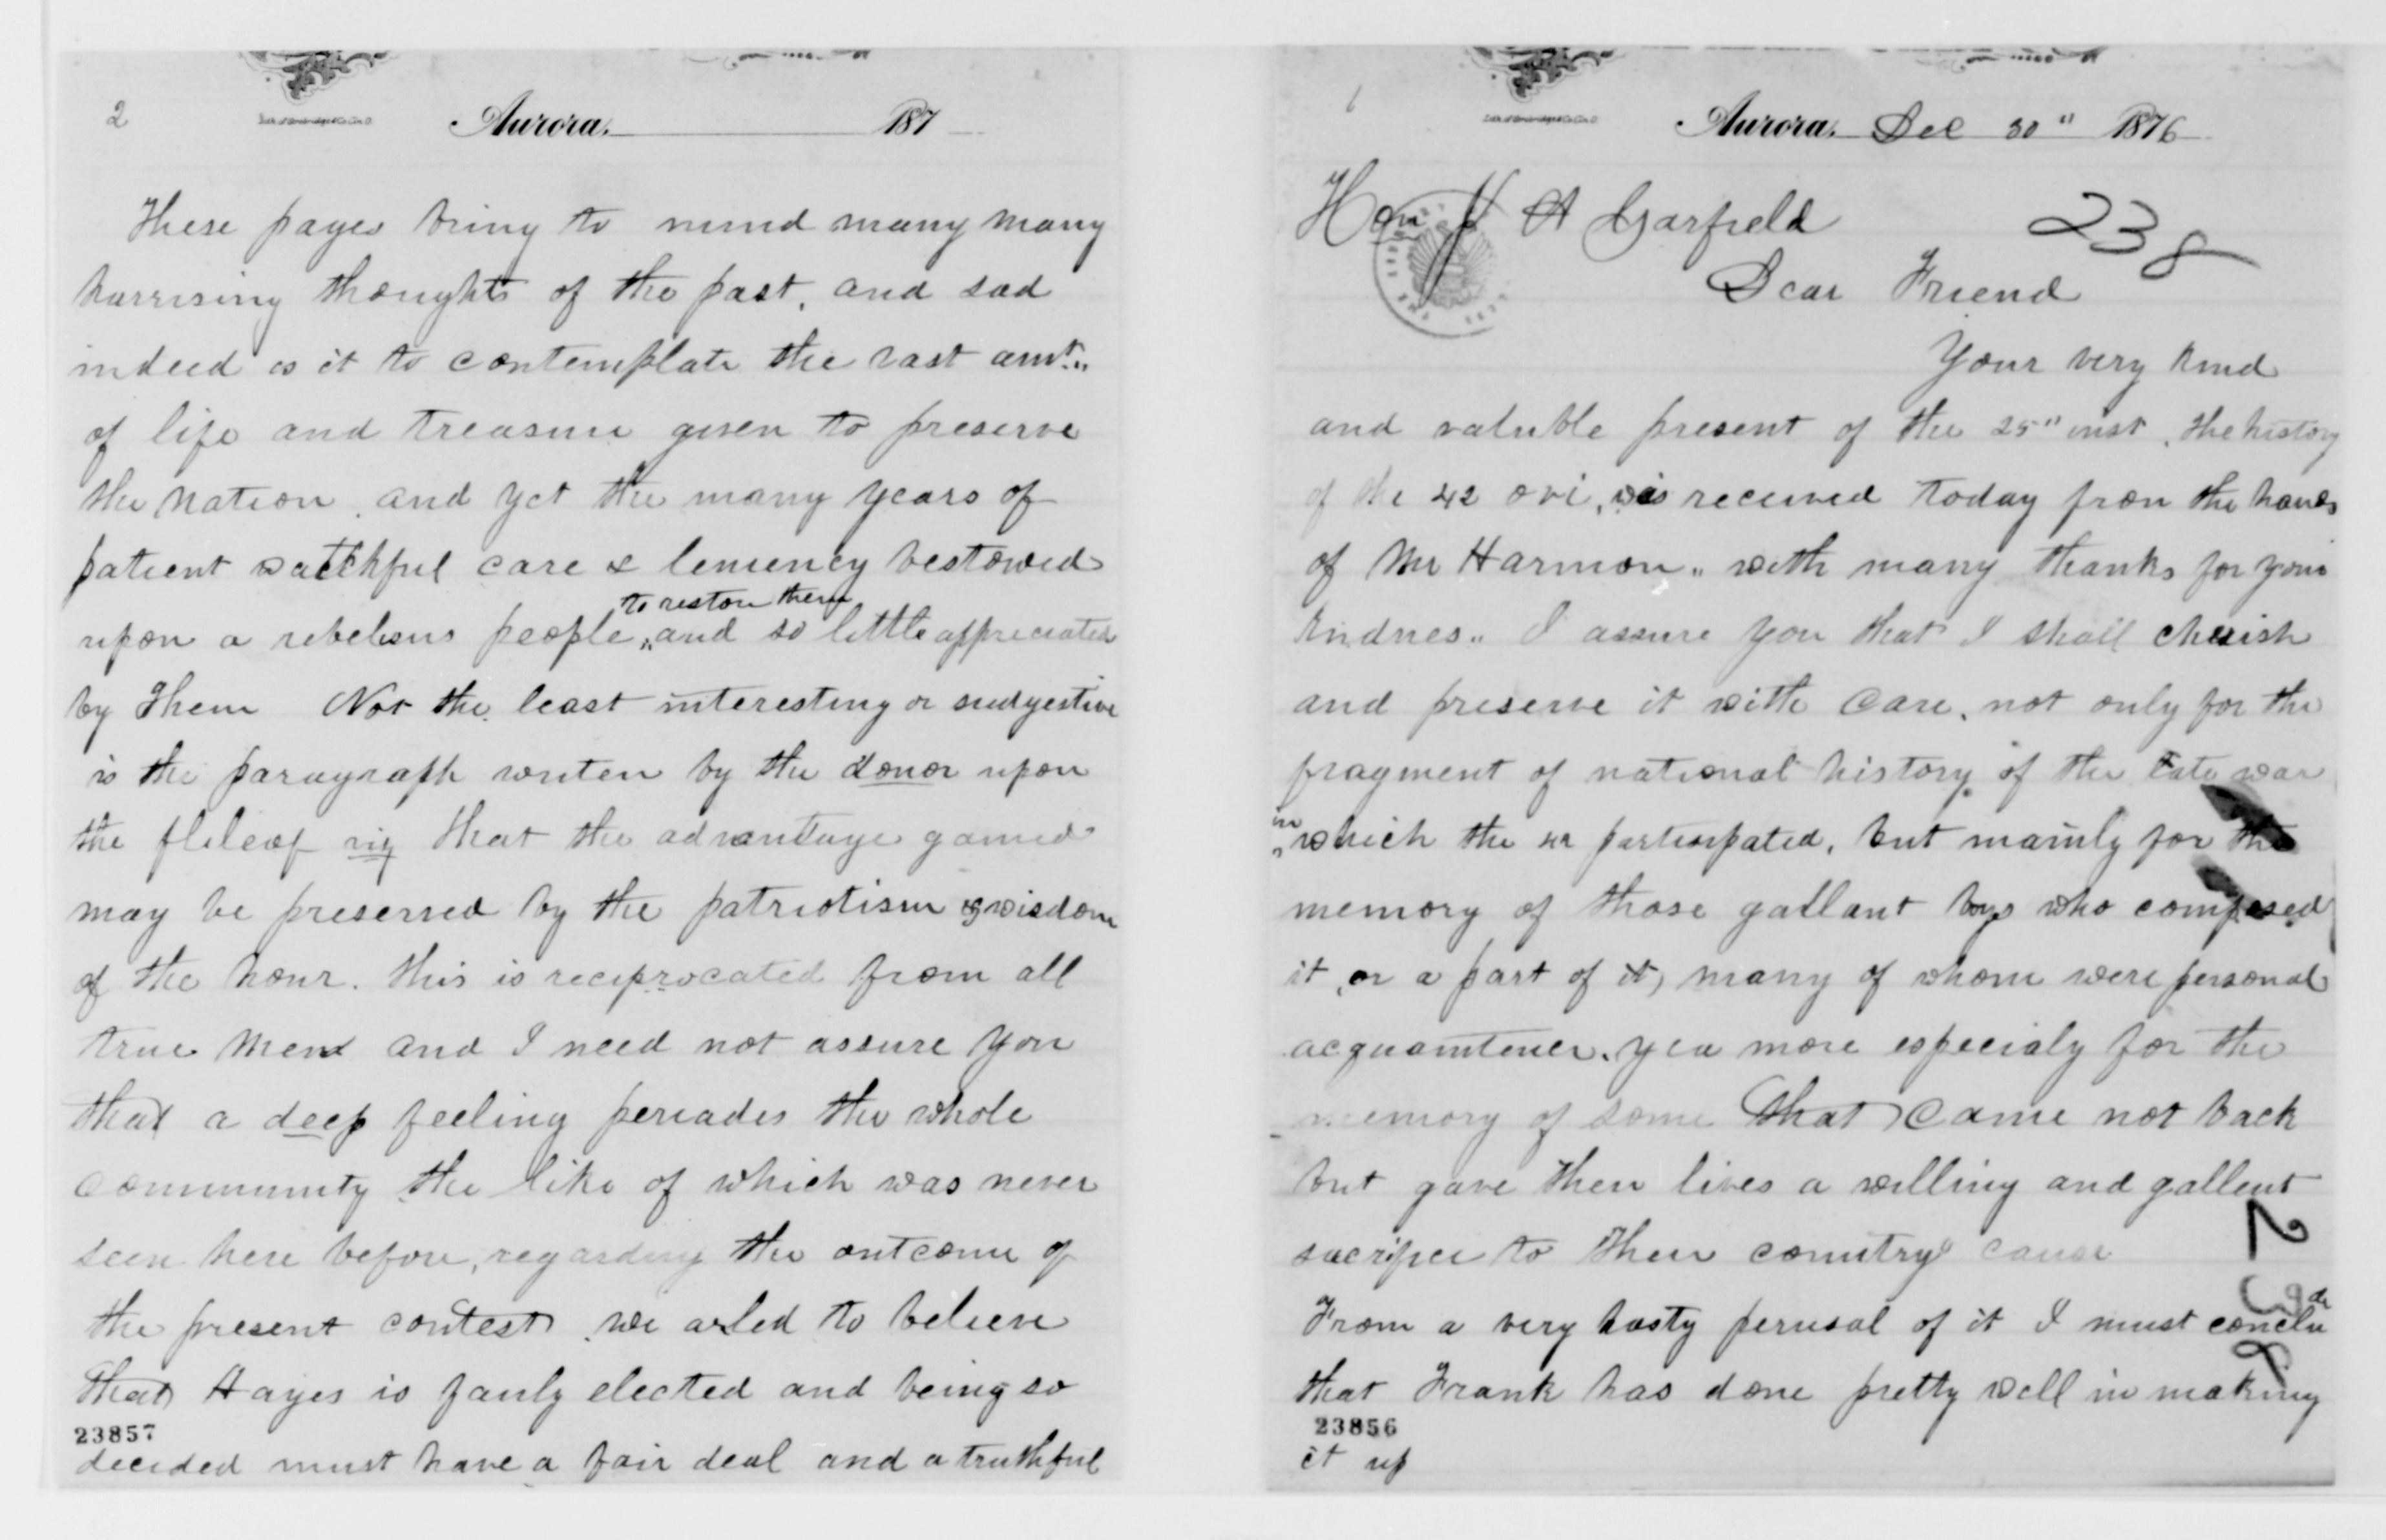 1
Aurora, Dec 30" 1876
Hon J A Garfield
238
Dear Friend
Your very kind
and valuble present of the 25" inst, the history
of the 42 ovi, was received today from the hands
of Mr Harmon" with many thanks for your
kindnes" I assure you that I shall cherish
and preserve it with care, not only for the
fragment of national history of the late war
in
"which the 42 partisipated, but mainly for the
memory of those gallant boys who composed
it, or a part of it, many of whom were personal
acquaintences, yea more especialy for the
memory of some that came not back
but gave their lives a willing and gallent
sacrifice to their country cause
238
From a very hasty perusal of it I must conclude
that Frank has done pretty well in making
23856
it up
2
Aurora, 187
These pages bring to mind many many
harrising thoughts of the past, and sad
indeed is it to contemplate the vast amt"
of life and treasure given to preserve
the nation, and yet the many years of
patient watchful care & leniency bestowed
to restore them
upon a rebelious people, "and so little appreciated
by them Not the least interesting or sudgestive
is the paragraph writen by the donor upon
the flileaf viz that the advantage gained
may be preserved by the patriotism & wisdom
of the hour. this is reciprocated from all
true men and I need not assure you
that a deep feeling pervades the whole
community the like of which was never
seen here before, regarding the outcome of
the present contest, we are led to believe
that Hayes is fairly elected and being so
23857
decided must have a fair deal and a truthful